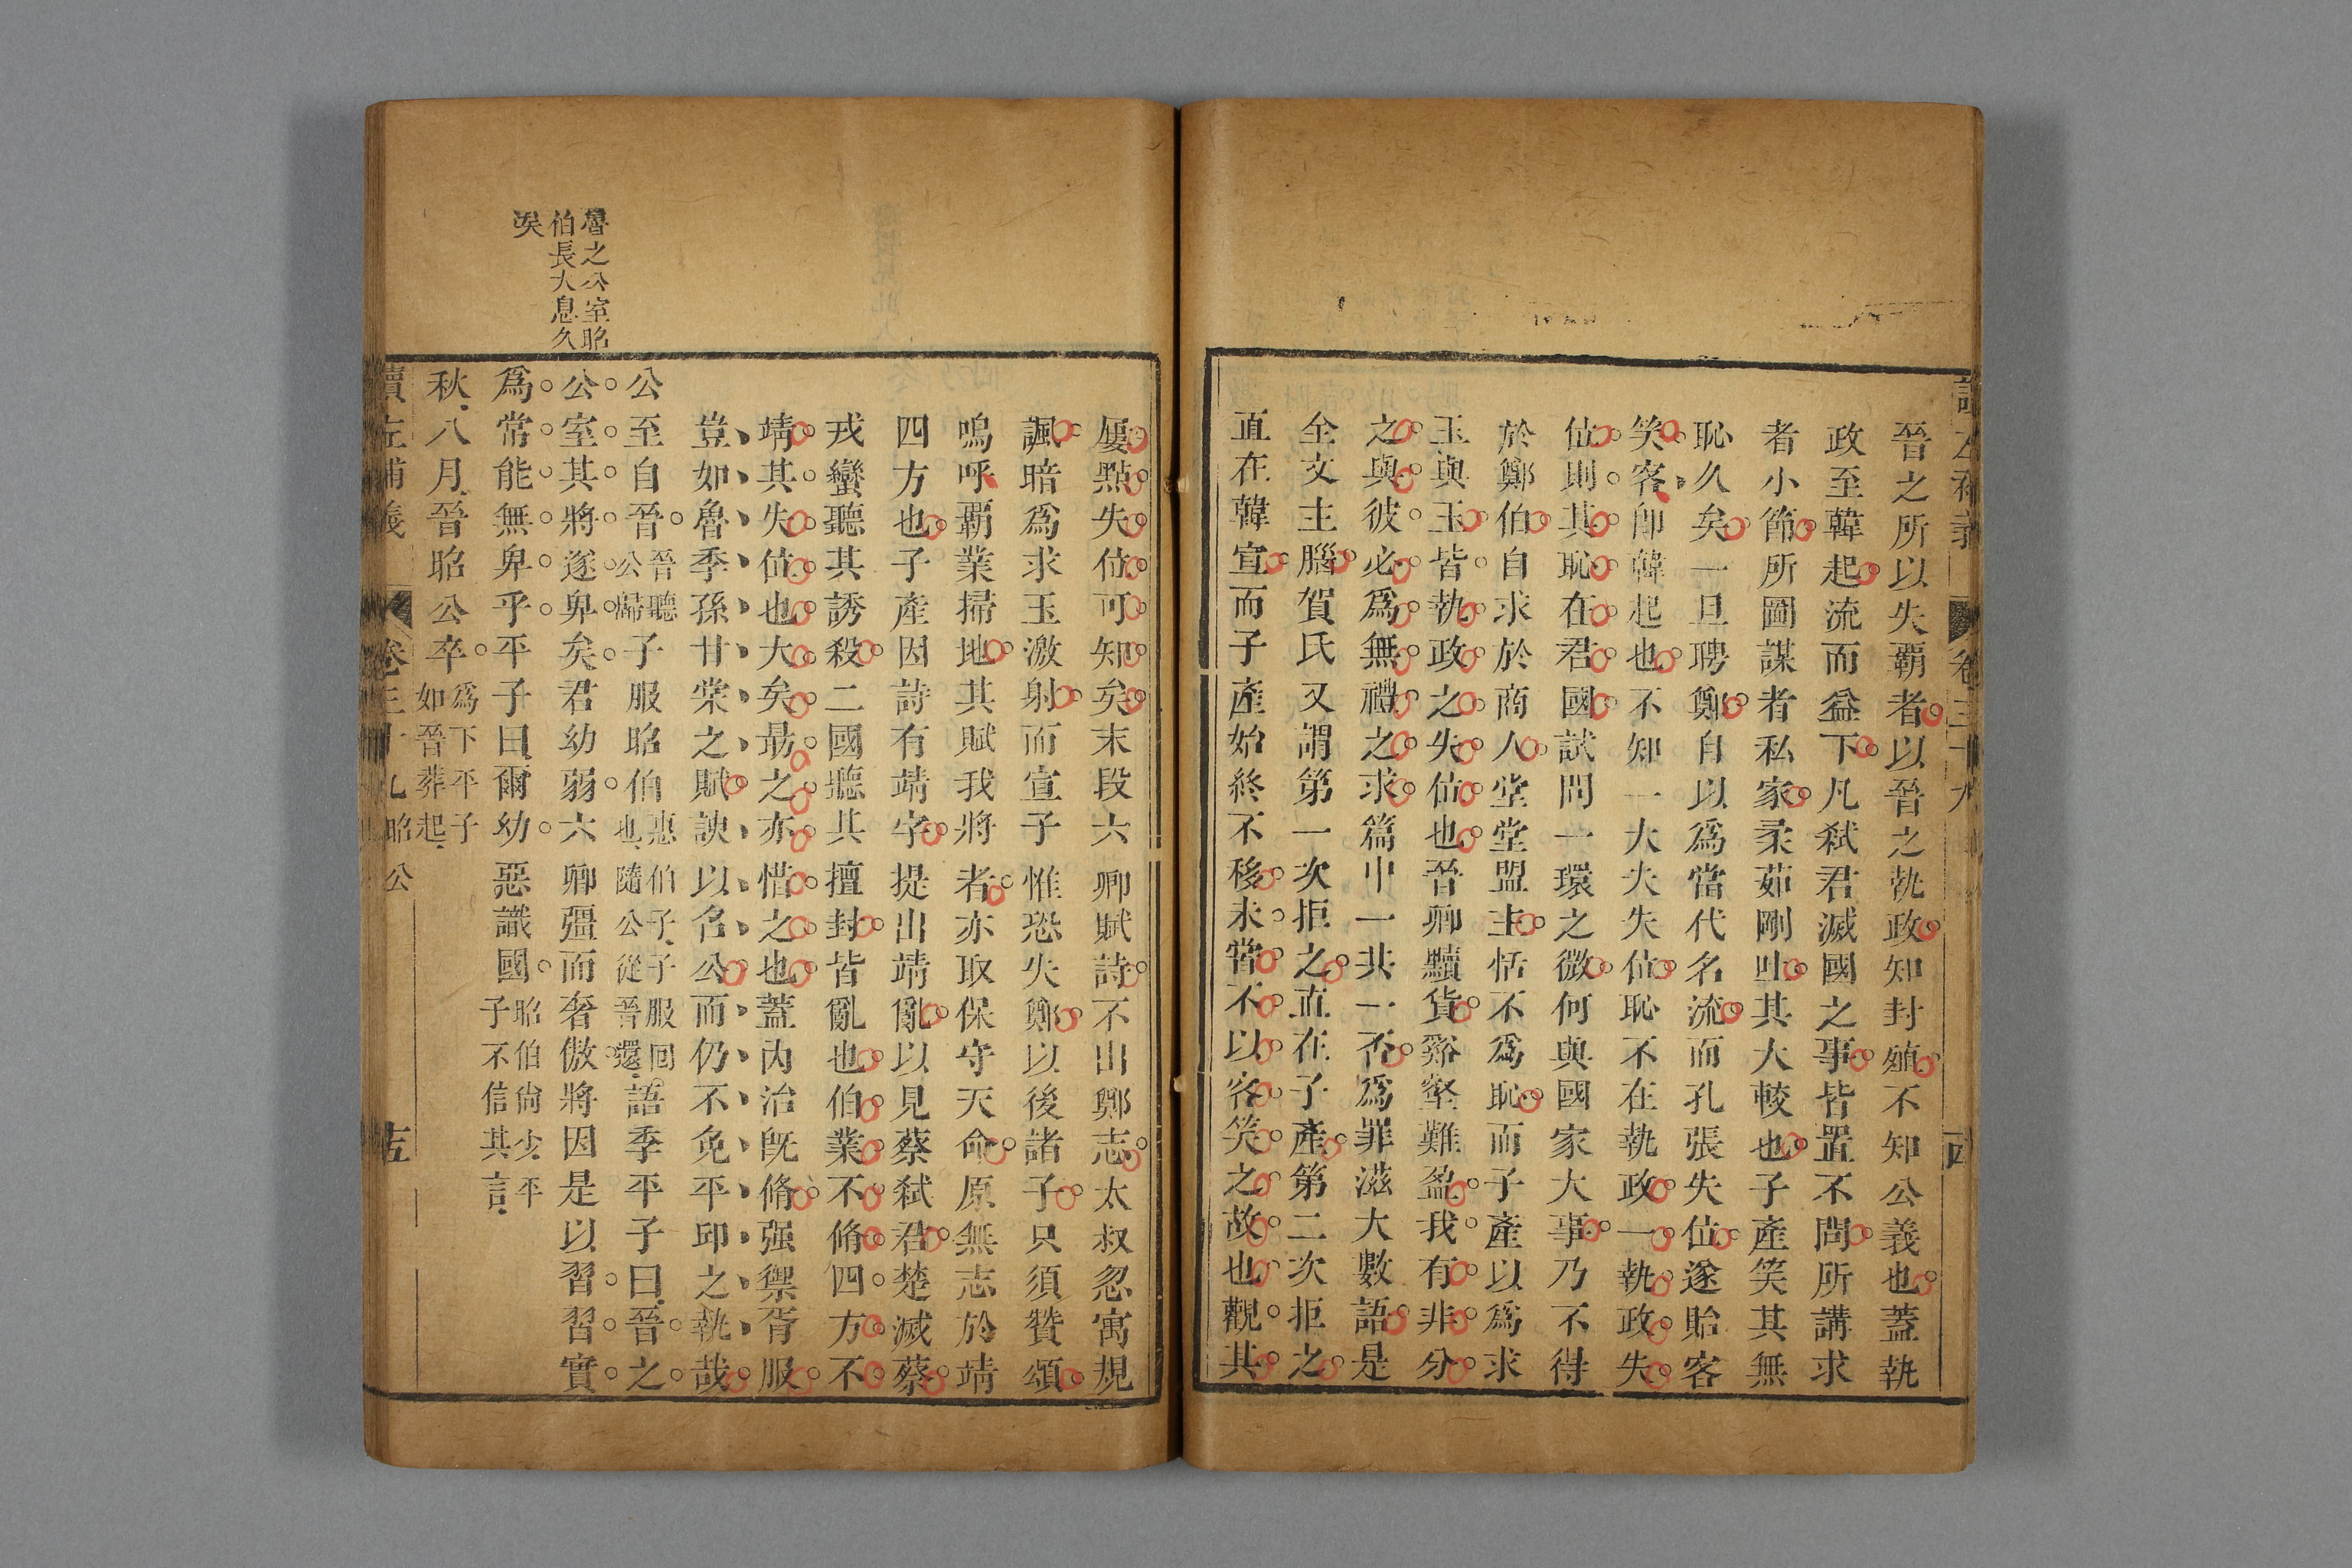 晉之所以失覇者以晉之執政知封殖不知公義也蓋執
政至韓起流而益下凡弒君滅國之事皆置不問所講求
者小節所圖謀者私家柔茹剛吐其大較也子產笑其無
恥久矣一旦聘鄭自以爲當代名流而孔張失位遂貽客
笑客卽韓起也不知一大夫失位恥不在執政一執政失
位則其恥在君國試問一環之微何與國家大事乃不得
於鄭伯自求於商人堂堂盟主恬不爲恥而子產以爲求
玉與玉皆執政之失位也晉卿黷貨谿壑難盈我有非分
之與彼必爲無禮之求篇中一共一否爲罪滋大數語是
全文主腦賀氏又謂第一次拒之直在子產第二次拒之
直在韓宣而子產始終不移未嘗不以客笑之故也觀其
屢點失位可知矣末段六卿賦詩不出鄭志太叔忽寓規
諷暗爲求玉激射而宣子惟恐失鄭以後諸子只須贊頌
嗚呼覇業掃地其賦我將者亦取保守天命原無志於靖
四方也子產因詩有靖字提出靖亂以見蔡弒君楚滅蔡
戎蠻聽其誘殺二國聽其擅封皆亂也伯業不脩四方不
靖其失位也大矣最之亦惜之也蓋內治旣脩强禦胥服
豈如魯季孫甘棠之賦諛以召公而仍不免平邱之執哉
魯之公室昭
伯長大息久
矣
公至自晉晉聽公歸子服昭伯惠伯子子服回也隨公從晉還語季平子曰晉之
公室其將遂卑矣君幼弱六卿彊而奢傲將因是以習習實
爲常能無卑乎平子曰爾幼惡識國昭伯尙少平子不信其言
秋八月晉昭公卒爲下平子如晉葬起
讀左補義 卷三十九 昭公 十五